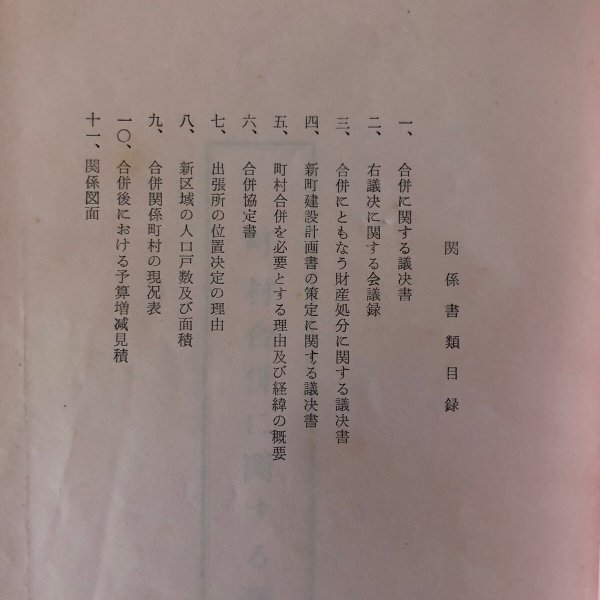 関係書類目録
一、合併に関する議決書
二、右議決に関する会議録
三、合併にともなう財産処分に関する議決書
四、新町建設計画書の策定に関する議決書
五、町村合併を必要とする理由及び経緯の概要
六、合併協定書
七、出張所の位置決定の理由
八、新区域の人口戸数及び面積
九、合併関係町村の現況表
一〇、合併後における予算増減見積
十一、関係図面